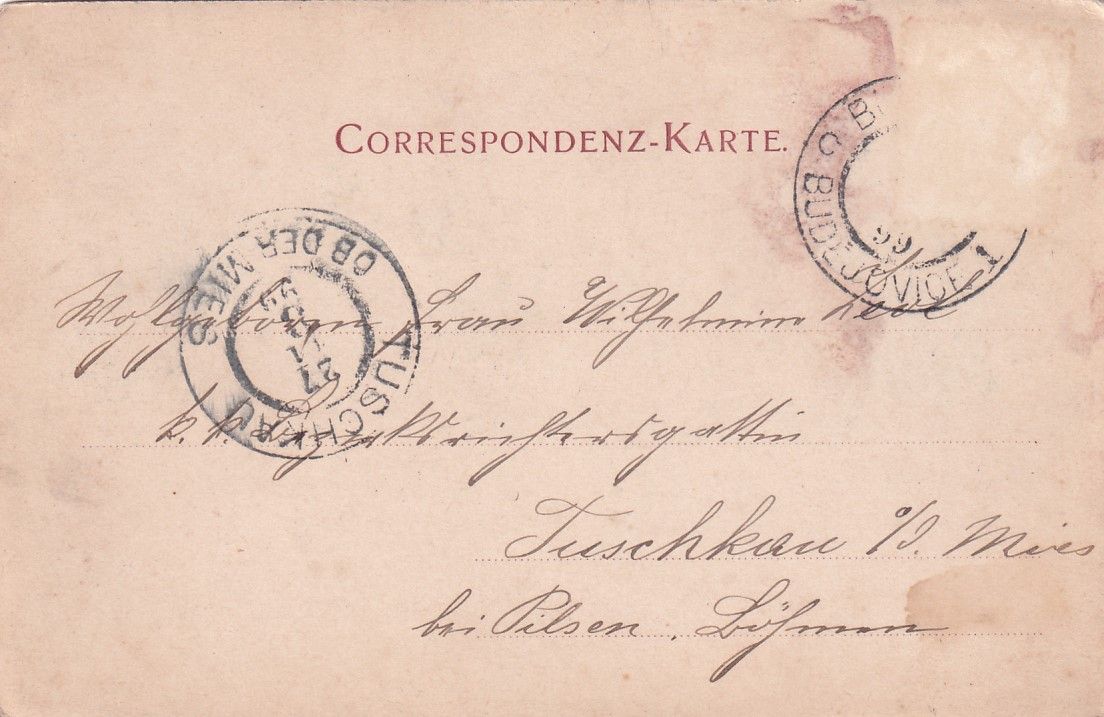 CORRESPONDENZ-KARTE.
BUDĚJOVICE 1
99
TUSCHKAU OB DER MIES
27
99
Wohlgeboren Frau Wilhelmine
k. k. Bezirksrichtersgattin
Tuschkau o/d. Mies
bei Pilsen, Böhmen